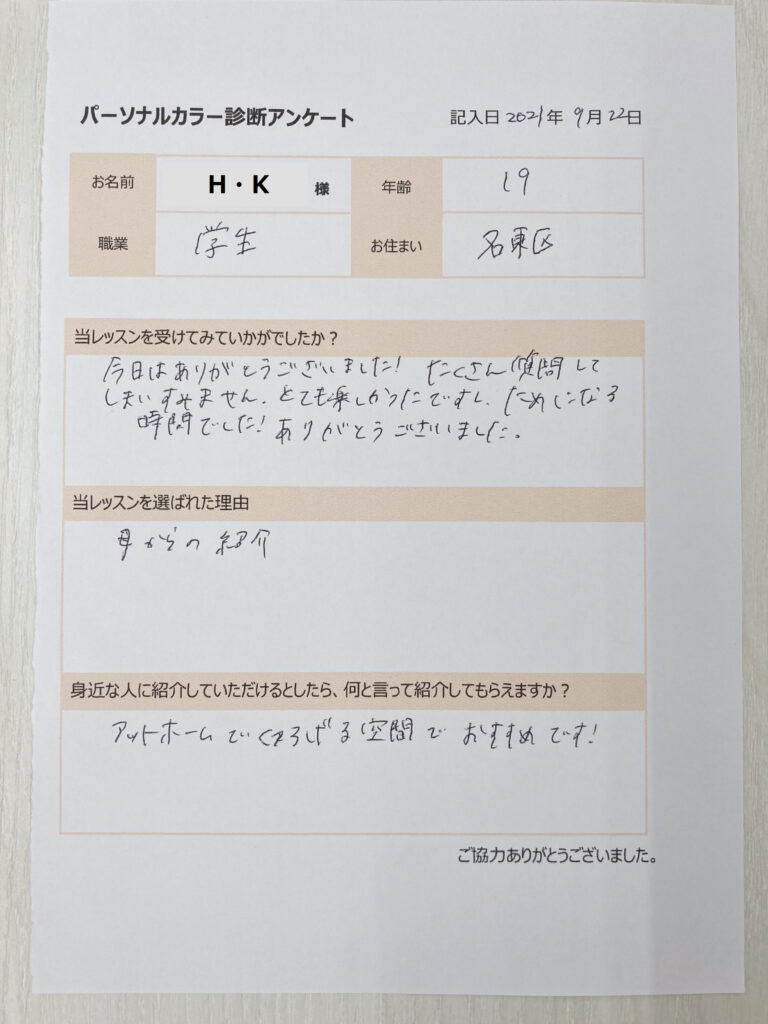 パーソナルカラー診断アンケート
記入日 2021年 9月 22日
お名前 H・K 様 年齢 19
職業 学生 お住まい 名東区
当レッスンを受けてみていかがでしたか？
今日はありがとうございました! たくさん質問して
しまいすみません. とても楽しかったですし、ためになる
時間でした! ありがとうございました。
当レッスンを選ばれた理由
母からの紹介
身近な人に紹介していただけるとしたら、何と言って紹介してもらえますか？
アットホームでくつろげる空間で おすすめです!
ご協力ありがとうございました。